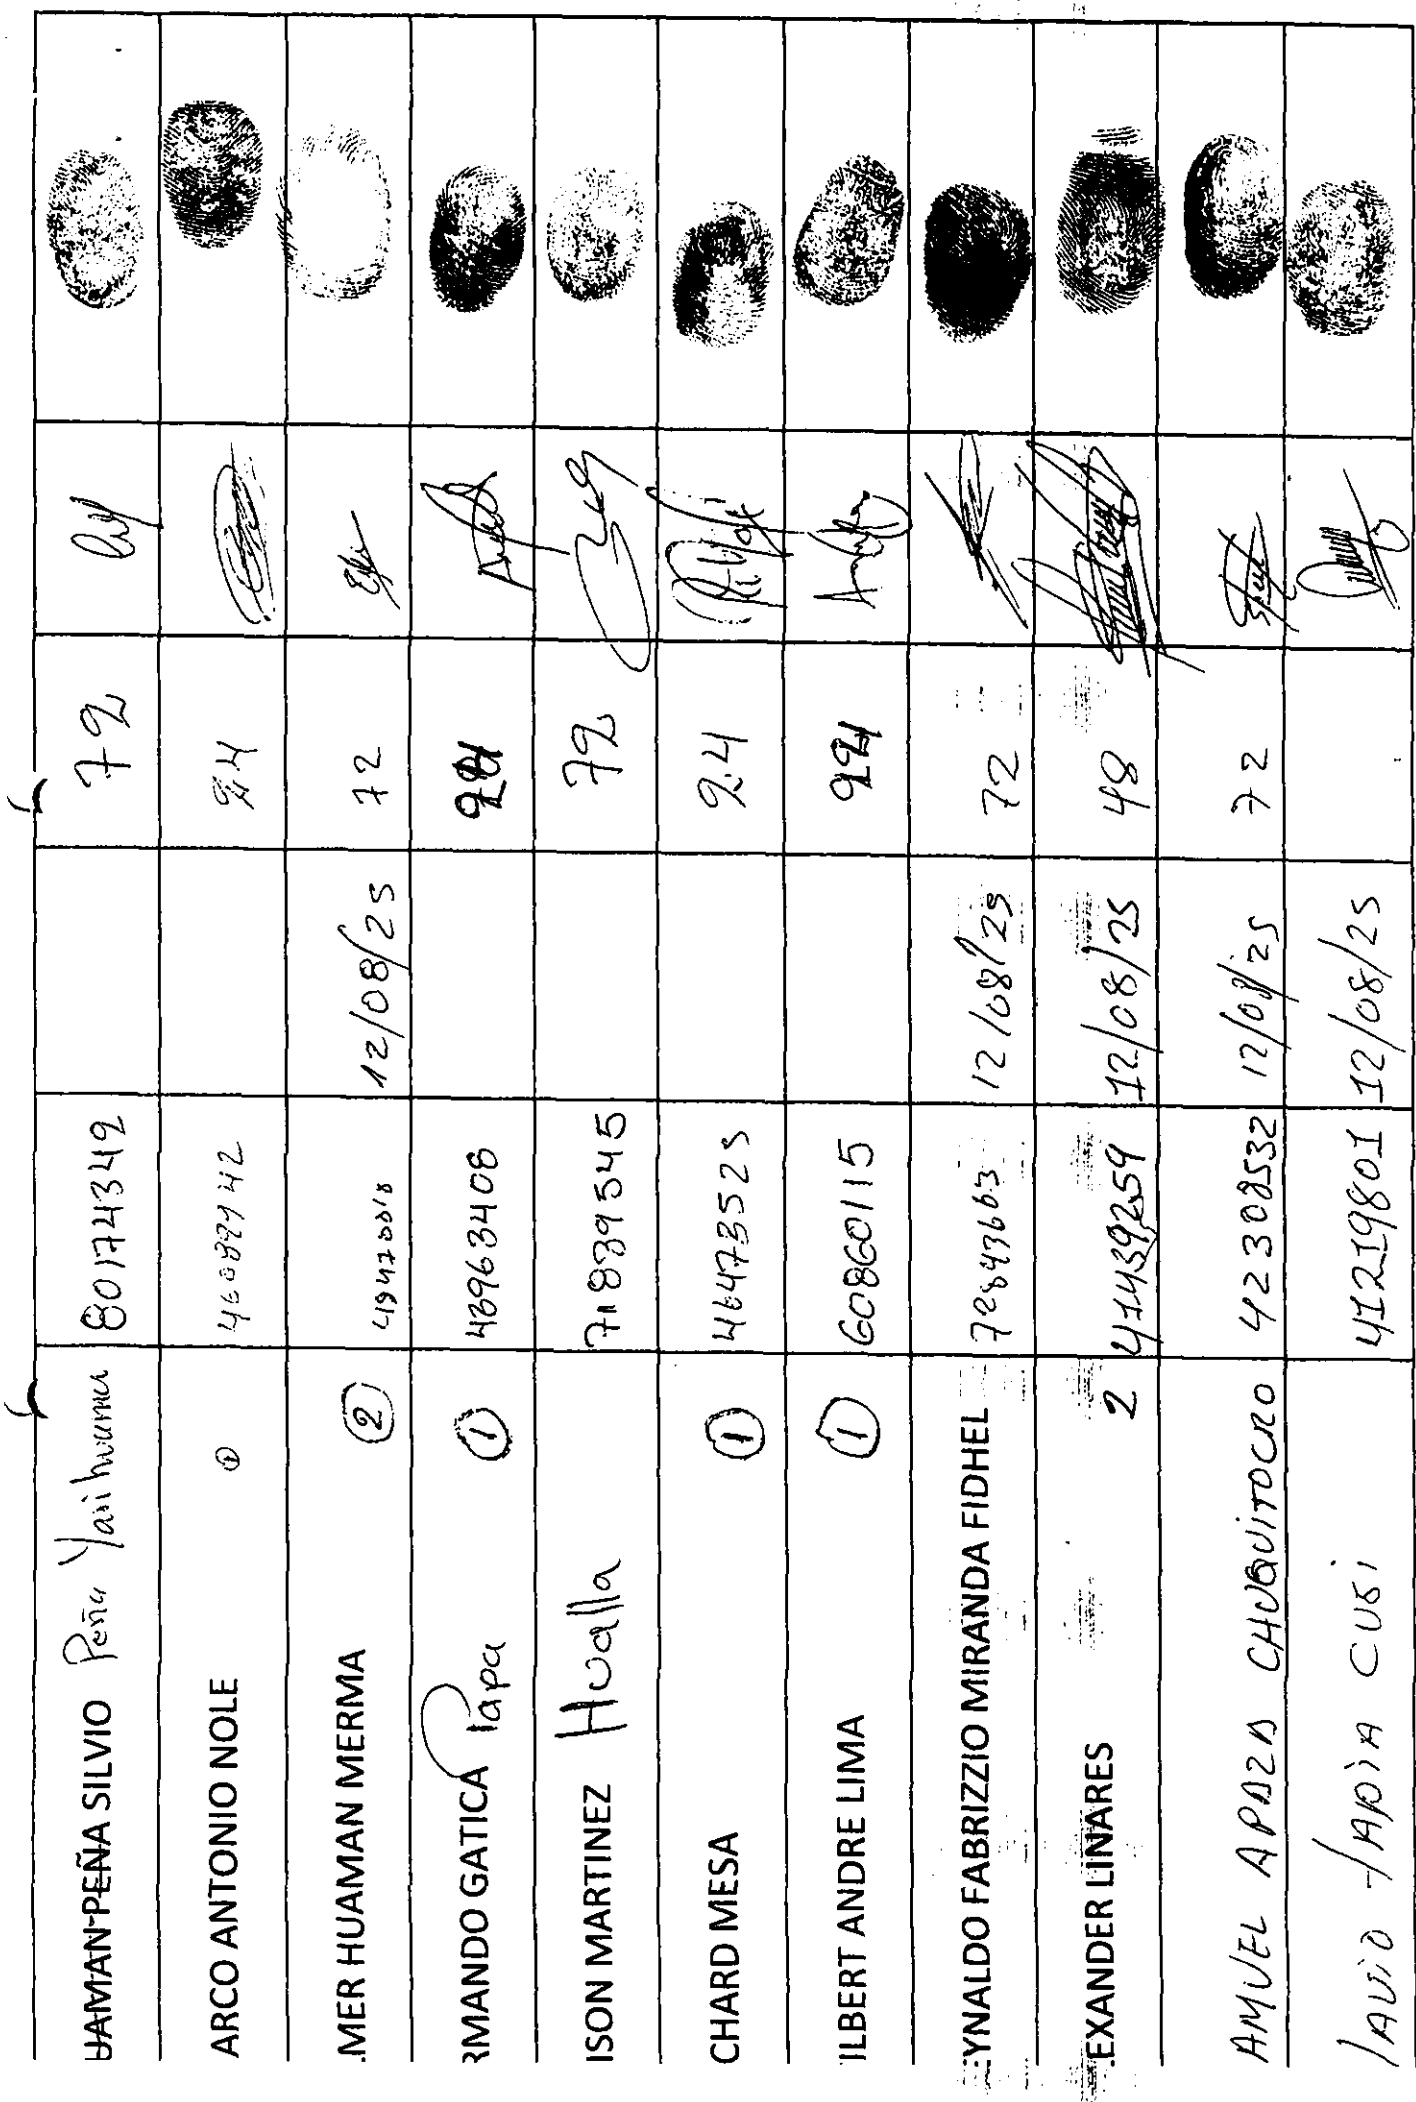 UAMAN PEÑA SILVIO Peña Yarihuama 80174349 72
ARCO ANTONIO NOLE ① 24
MER HUAMAN MERMA ② 12/08/25 72
RMANDO GATICA Papa ① 43963408
ISON MARTINEZ Hualla 71839545 72
CHARD MESA ① 46473525 24
ILBERT ANDRE LIMA ① 60860115
EYNALDO FABRIZZIO MIRANDA FIDHEL 72843663 12/08/25 72
EXANDER LINARES 2 12/08/25 48
AMUEL APAZA CHUQUITOCRO 12/08/25 72
TAPIA CUSI 41219801 12/08/25